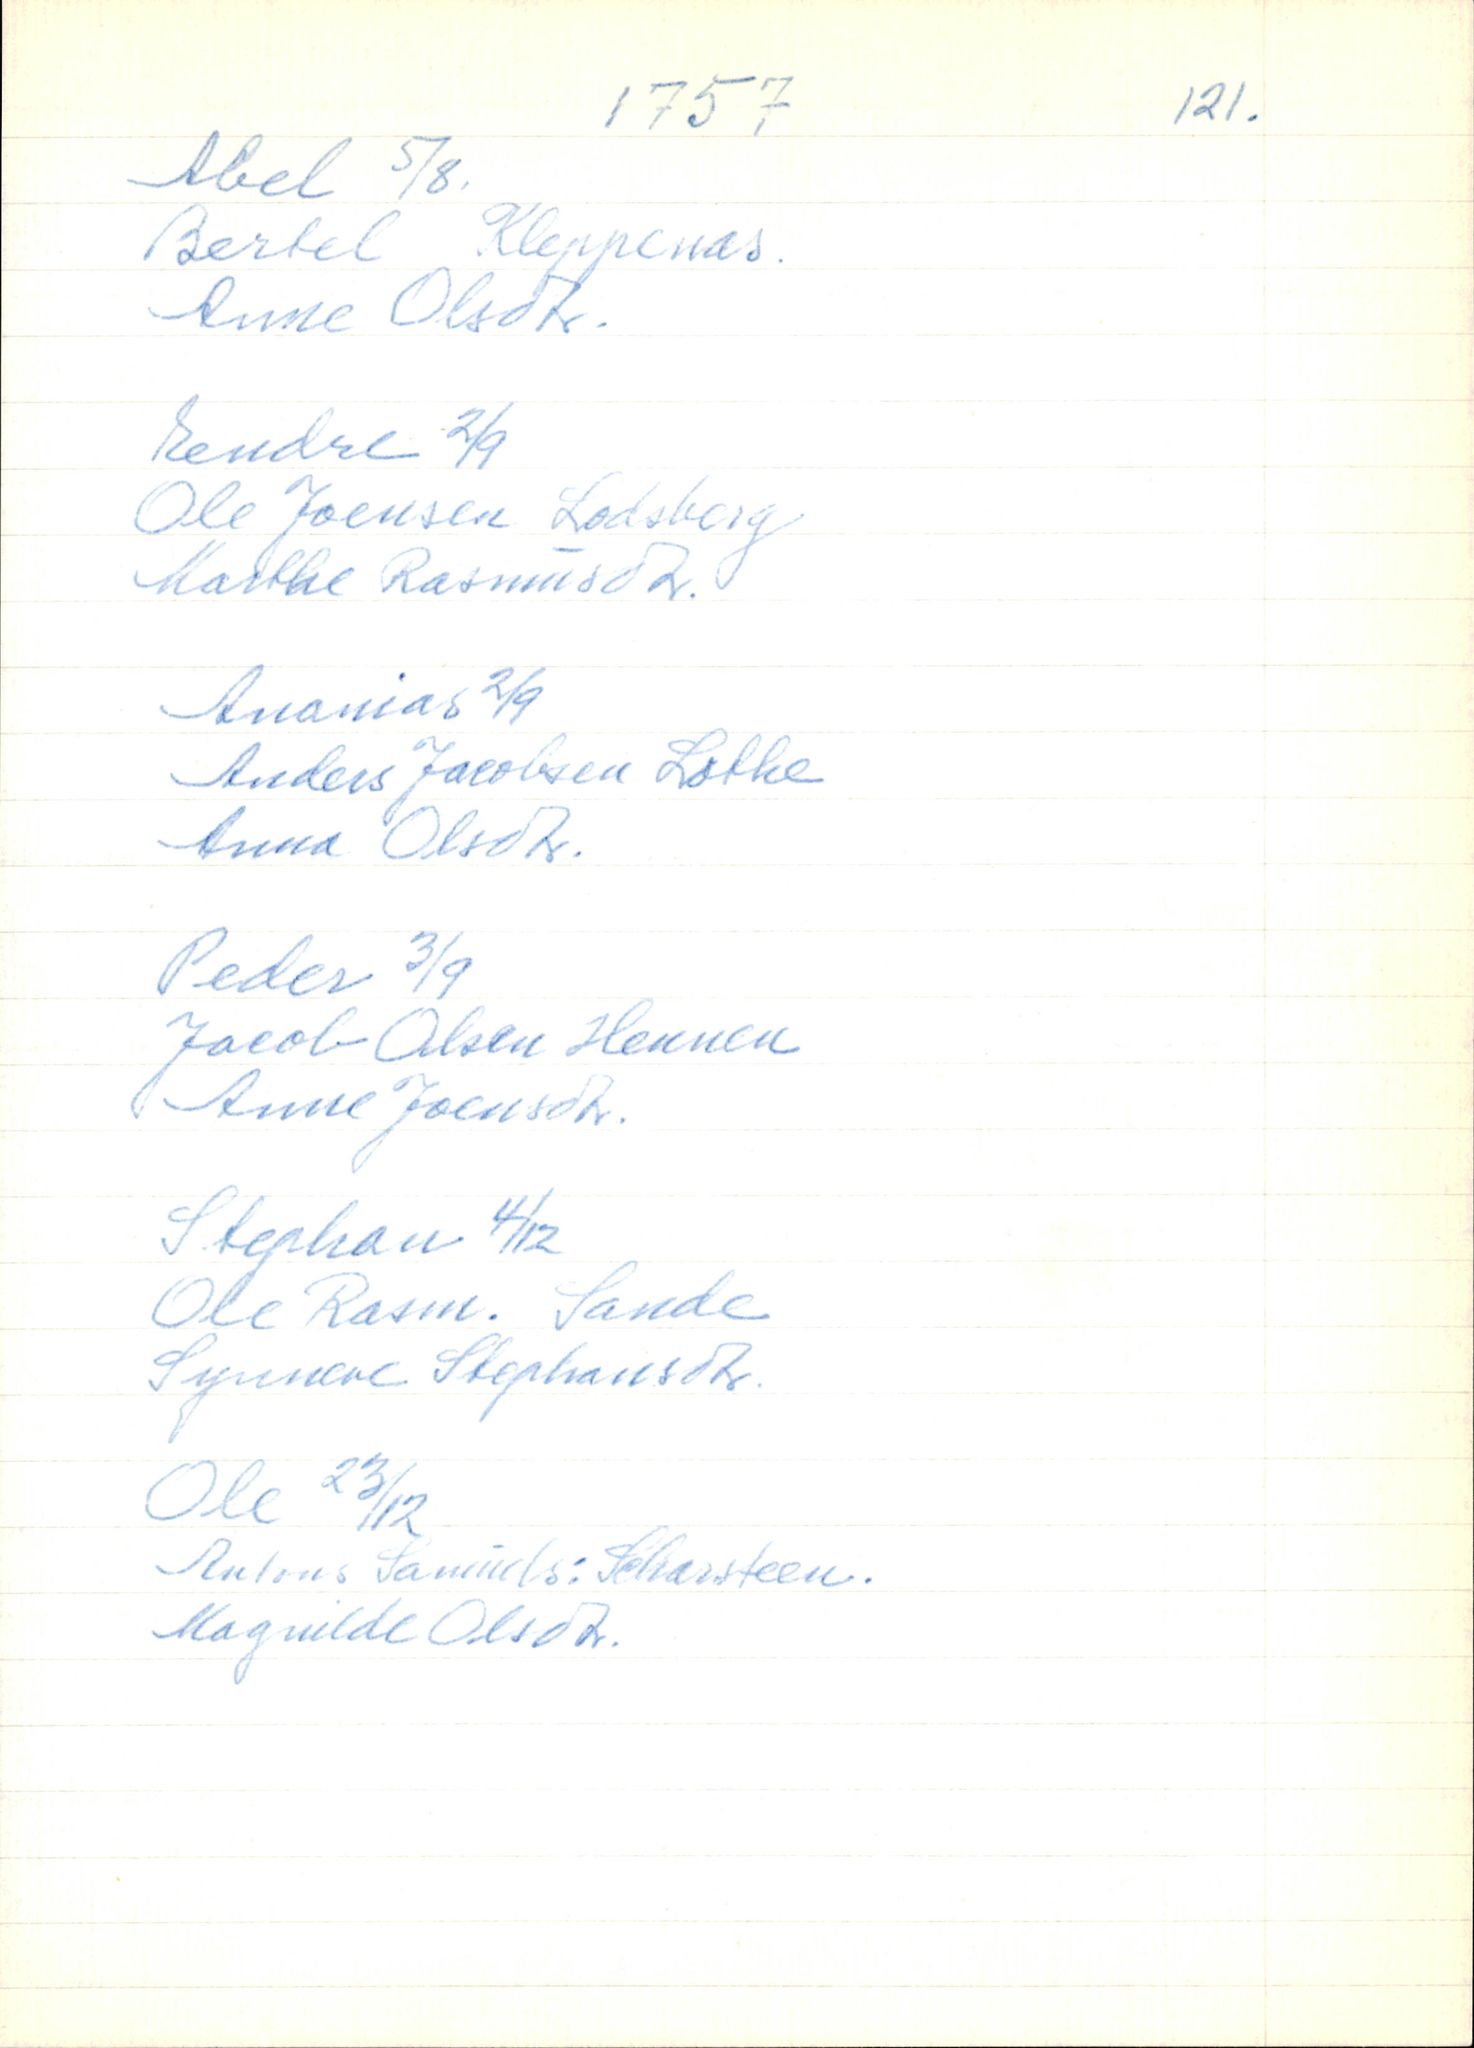 1757 121.
Abel 5/8.
Bertel Kleppenas.
Anne Olsdtr.
Eendre 2/9
Ole Joensen Lodsberg
Marthe Rasmusdtr.
Ananias 2/9
Anders Jacobsen Lothe
Anna Olsdtr.
Peder 3/9
Jacob Olsen Hennen
Anne Joensdtr.
Stephan 4/12
Ole Rasm. Sande
Synneve Stephansdtr.
Ole 23/12
Antons Samuels: Scharsteen.
Magnilde Olsdtr.